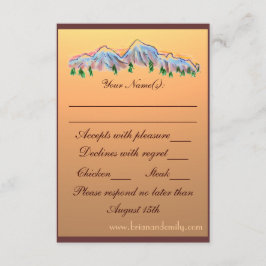 Your Name(s):
Accepts with pleasure___
Declines with regret___
Chicken___ Steak___
Please respond no later than
August 15th
www.brianandemily.com